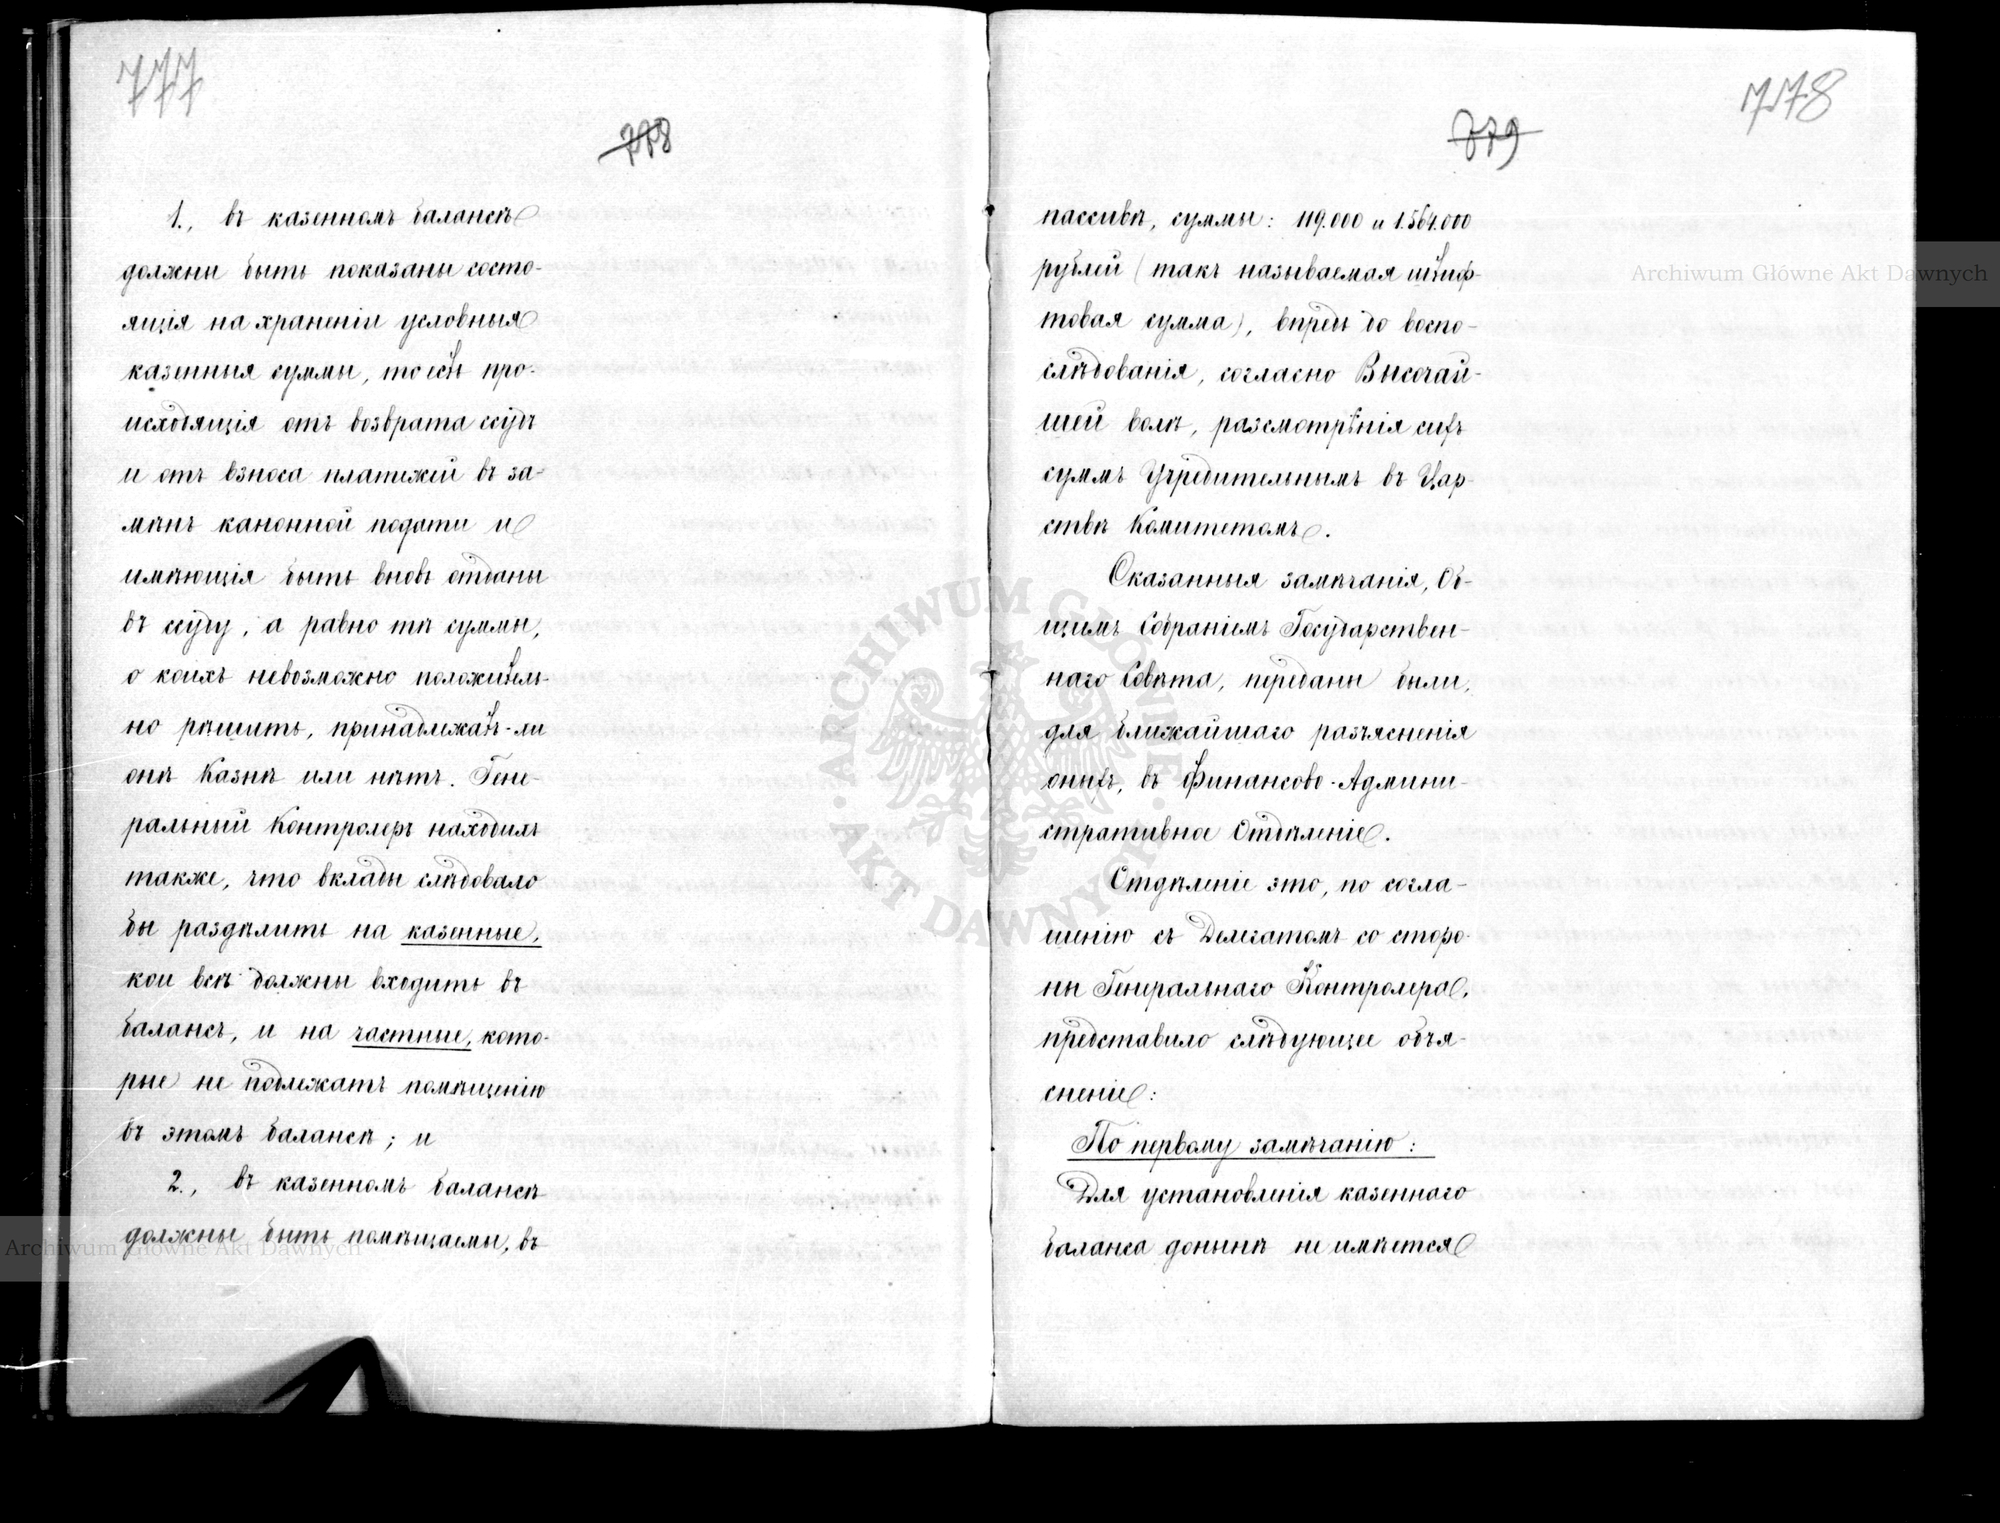 777
778
1., въ казенномъ балансѣ
должны быть показаны состо-
ящія на храненіи условныя
казенныя суммы, то есть про-
исходящія отъ возврата ссудъ
и отъ взноса платежей въ за-
мѣнъ канонной подати и
имѣющія быть вновь отданы
въ ссуду, а равно тѣ суммы,
о коихъ невозможно положитель-
но рѣшить, принадлежатъ-ли
онѣ Казнѣ или нѣтъ. Гене-
ральный Контролеръ находилъ
также, что вклады слѣдовало
бы раздѣлить на казенные,
кои всѣ должны входить въ
балансъ, и на частные, кото-
рые не подлежатъ помѣщенію
въ этомъ балансѣ; и
2., въ казенномъ балансѣ
должны быть помѣщаемы, въ
778
779
пассивѣ, суммы: 119.000 и 1.564.000
рублей (такъ называемая штиф-
товая сумма), впредь до воспо-
слѣдованія, согласно Высочай-
шей волѣ, разсмотрѣнія сихъ
суммъ Учредительнымъ въ Цар-
ствѣ Комитетомъ.
Сказанныя замѣчанія, Об-
щимъ Собраніемъ Государствен-
наго Совѣта, переданы были,
для ближайшаго разъясненія
оныхъ, въ Финансово-Админи-
стративное Отдѣленіе.
Отдѣленіе это, по согла-
шенію съ Делегатомъ со сторо-
ны Генеральнаго Контролера,
представило слѣдующее объя-
сненіе:
По первому замѣчанію:
Для установленія казеннаго
баланса донынѣ не имѣется
Archiwum Główne Akt Dawnych
Archiwum Główne Akt Dawnych
ARCHIWUM GŁÓWNE · AKT DAWNYCH ·